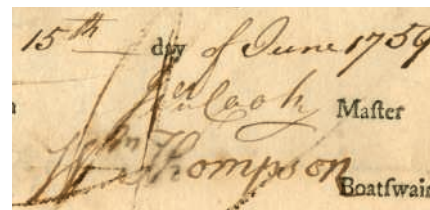 15th day of June 1759
Cook Maſter
Thompson Boatſwai